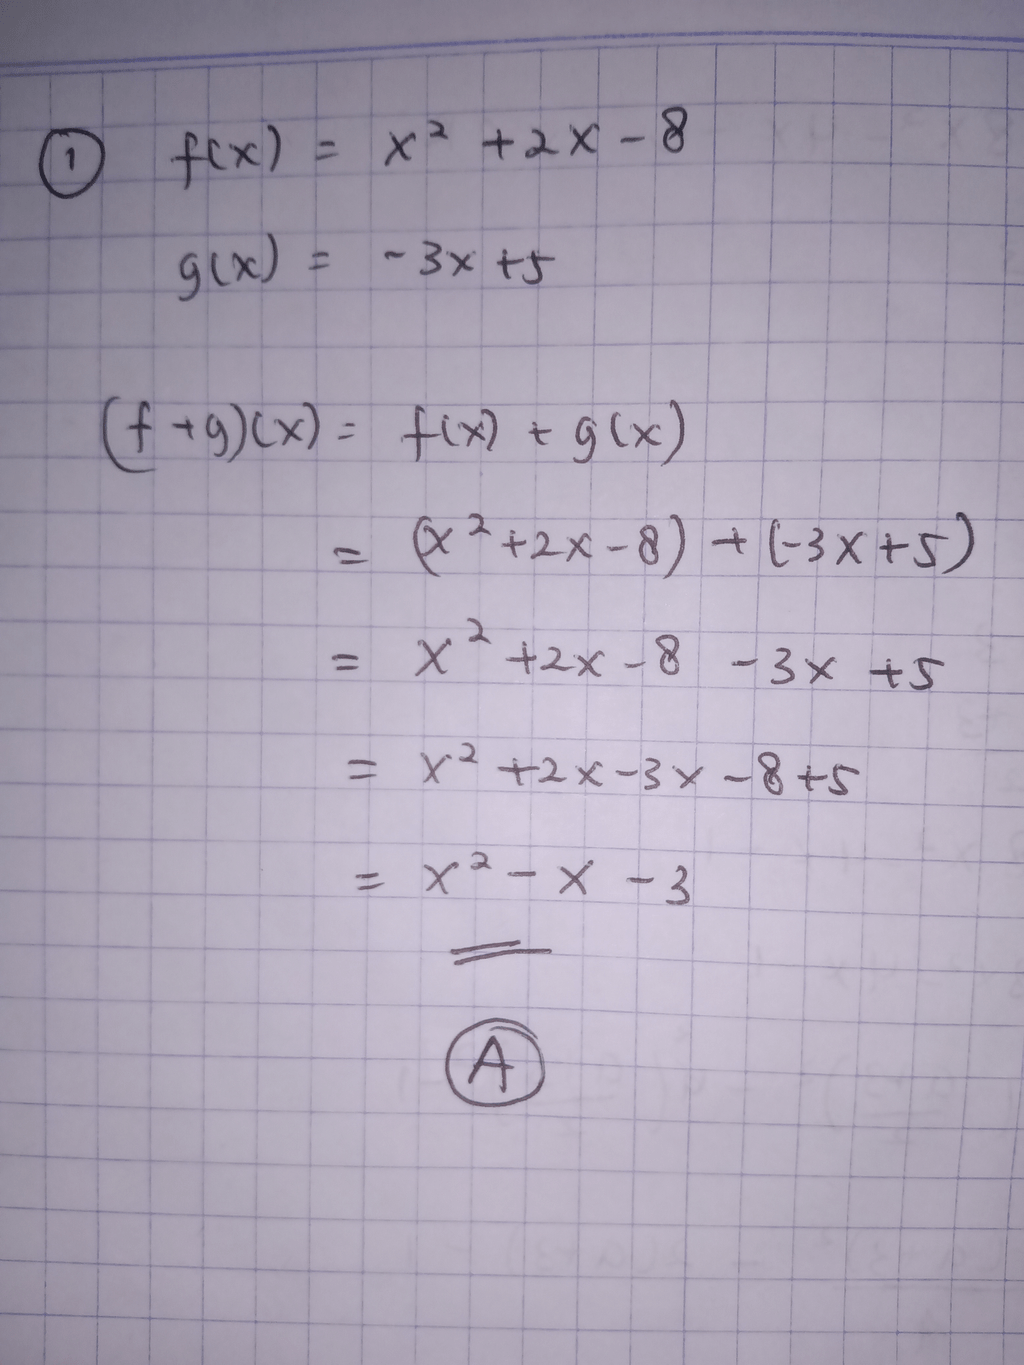 ① f(x) = x² + 2x - 8
g(x) = -3x + 5
(f + g)(x) = f(x) + g(x)
= (x² + 2x - 8) + (-3x + 5)
= x² + 2x - 8 - 3x + 5
= x² + 2x - 3x - 8 + 5
= x² - x - 3
Ⓐ